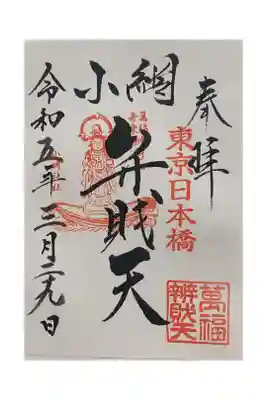 奉拝
東京日本橋
小網
弁財天
令和五年三月二十九日
萬福
辨財天